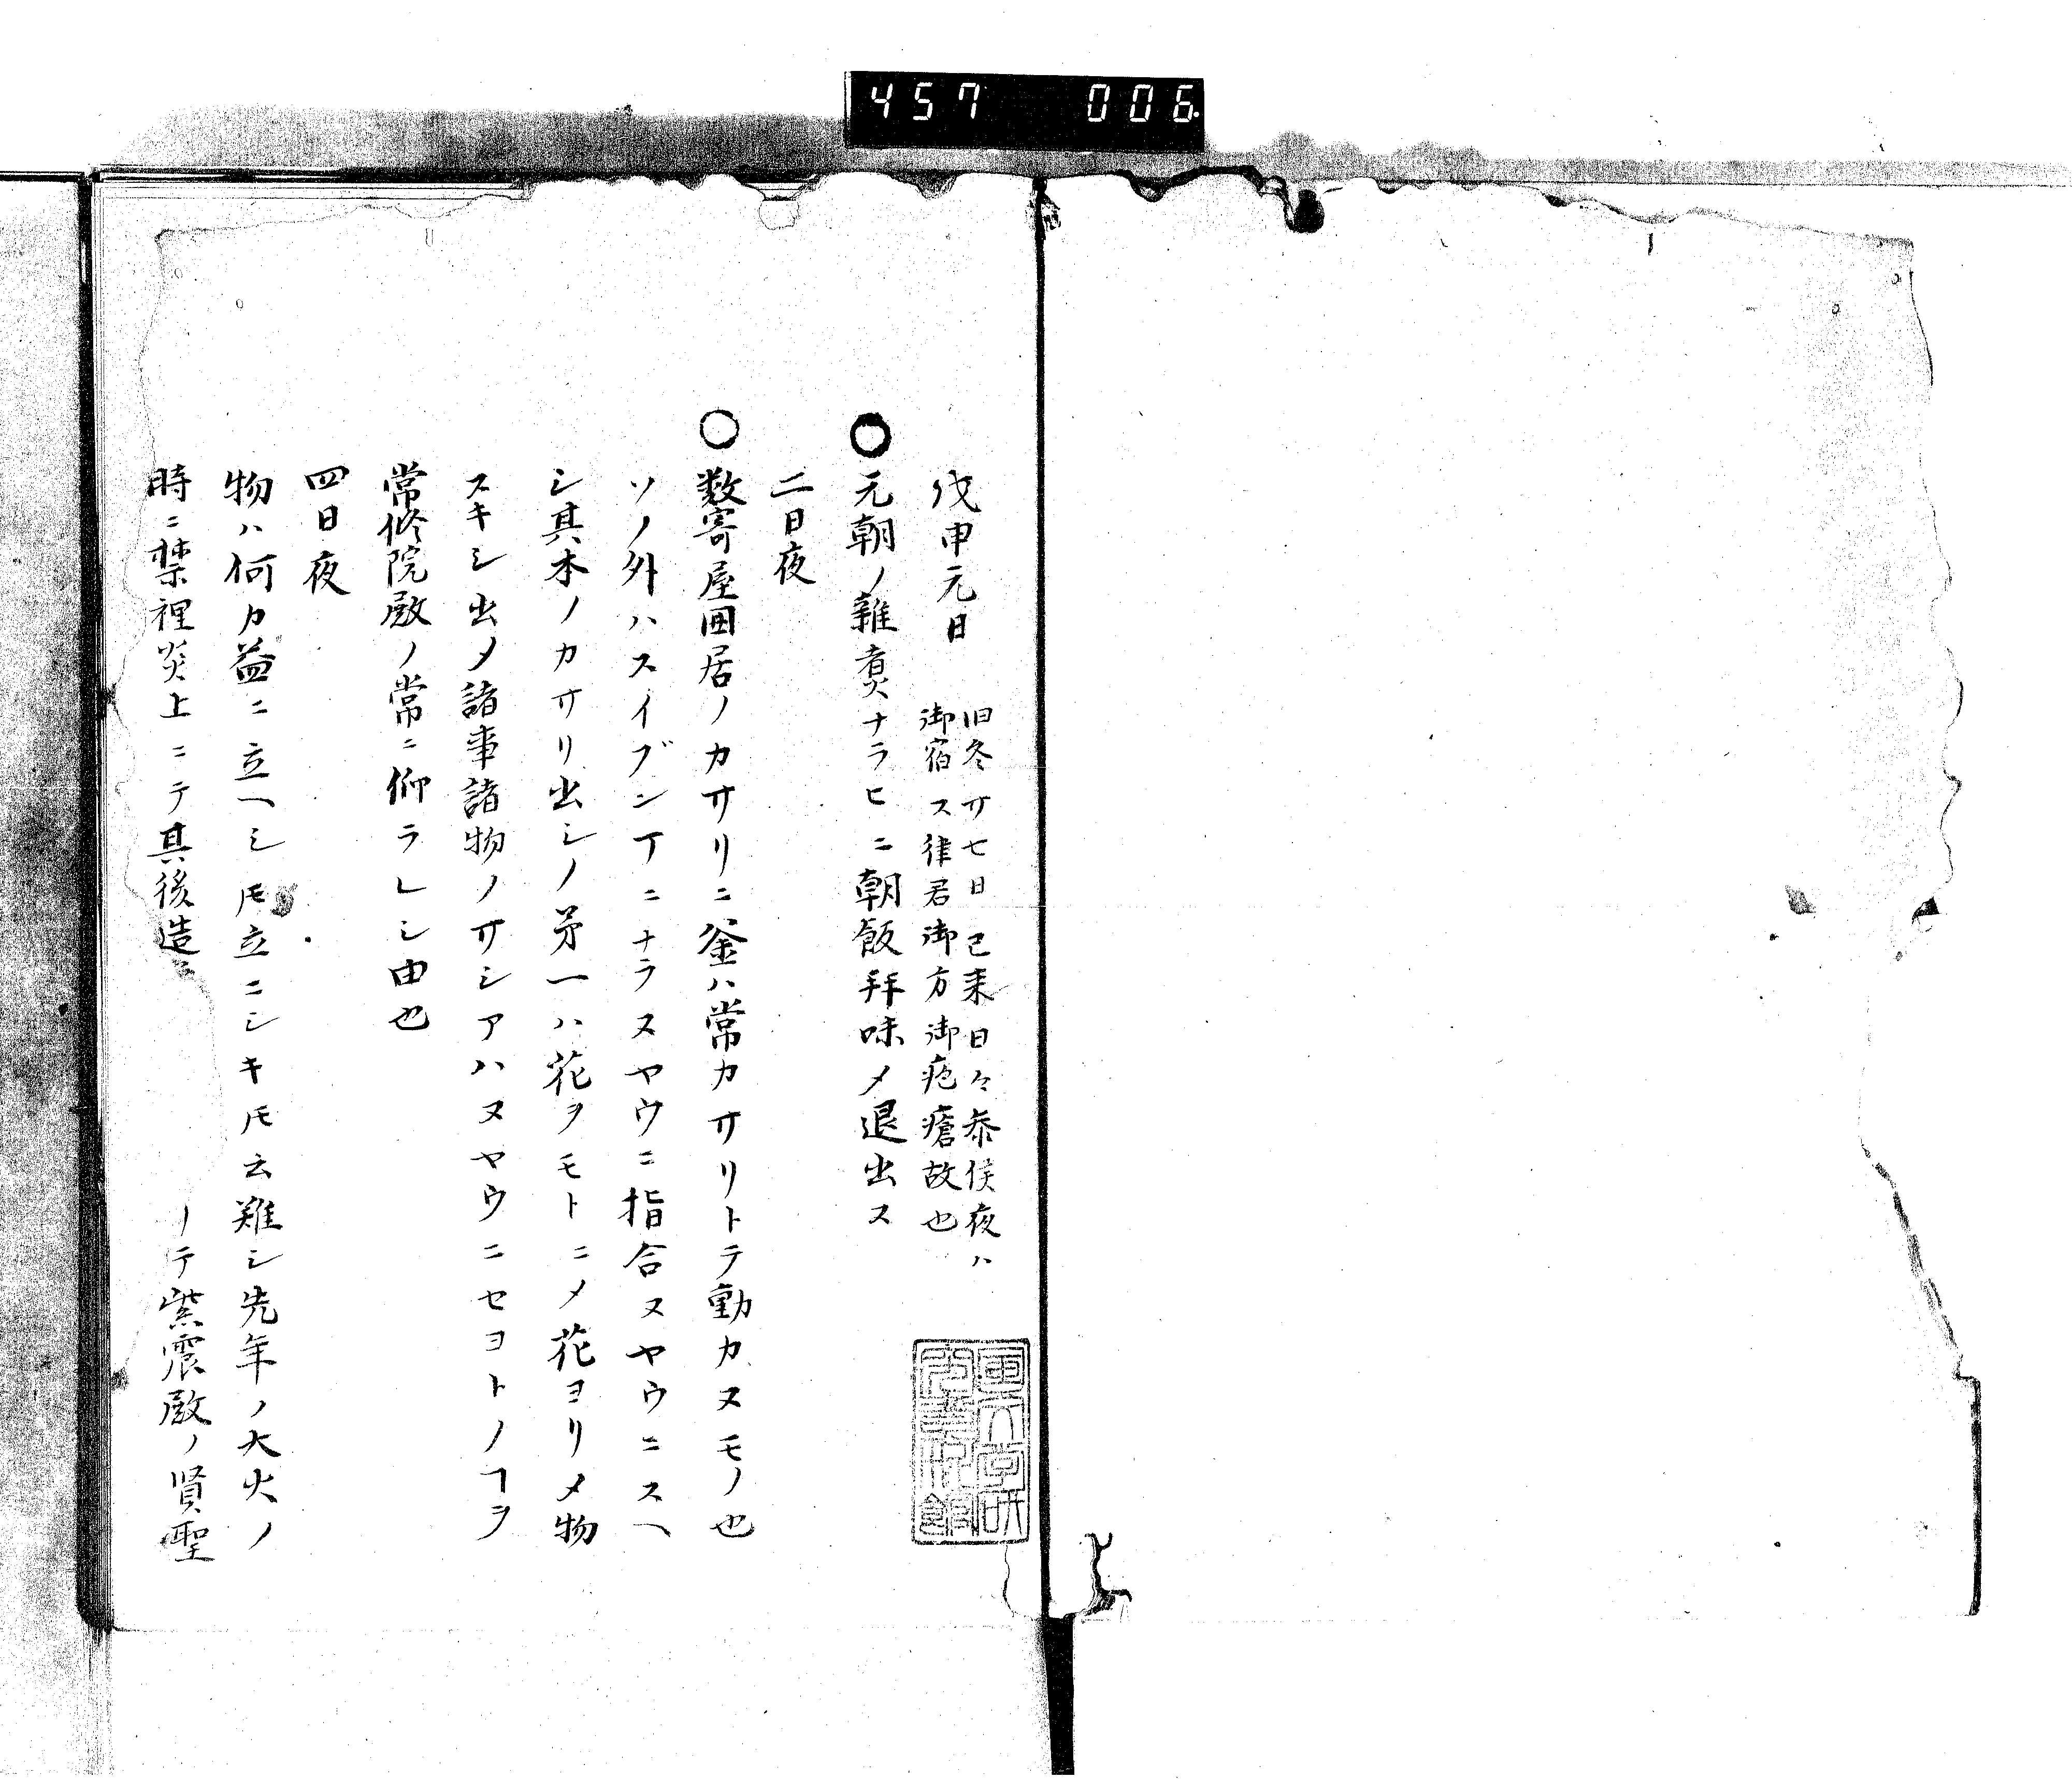 457 006
戊申元日
旧冬廿七日已来日々参候夜ハ
御宿ス律君御方御疱瘡故也
○元朝ノ雑煑ナラヒニ朝飯拝味〆退出ス
二日夜
○数寄屋囲居ノカサリニ釜ハ常カサリトテ動カヌモノ也
ソノ外ハスイブン丁ニナラヌヤウニ指合ヌヤウニスヘ
シ其本ノカサリ出シノ㐧一ハ花ヲモトニ〆花ヨリ〆物
スキシ出〆諸事諸物ノサシアハヌヤウニセヨトノヿヲ
常修院殿ノ常ニ仰ラレシ由也
四日夜
物ハ何カ益ニ立ヘシ𪜈立ニシキ𪜈云難シ先年ノ大火ノ
時ニ禁裡炎上ニテ其後造
ノテ紫震殿ノ賢聖